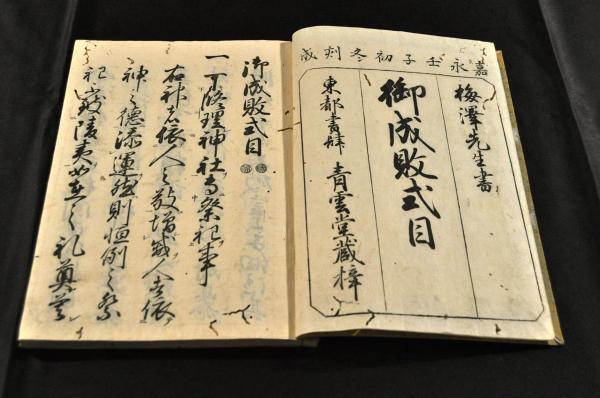 嘉永壬子初冬刻成
梅澤先生書
御成敗式目
東都書肆 青雲堂藏梓
御成敗式目
一可修理神社專祭祀事
右神者依人之敬増威人者依
神之德添運然則恒例之祭
祀不致陵夷如在之礼奠莫